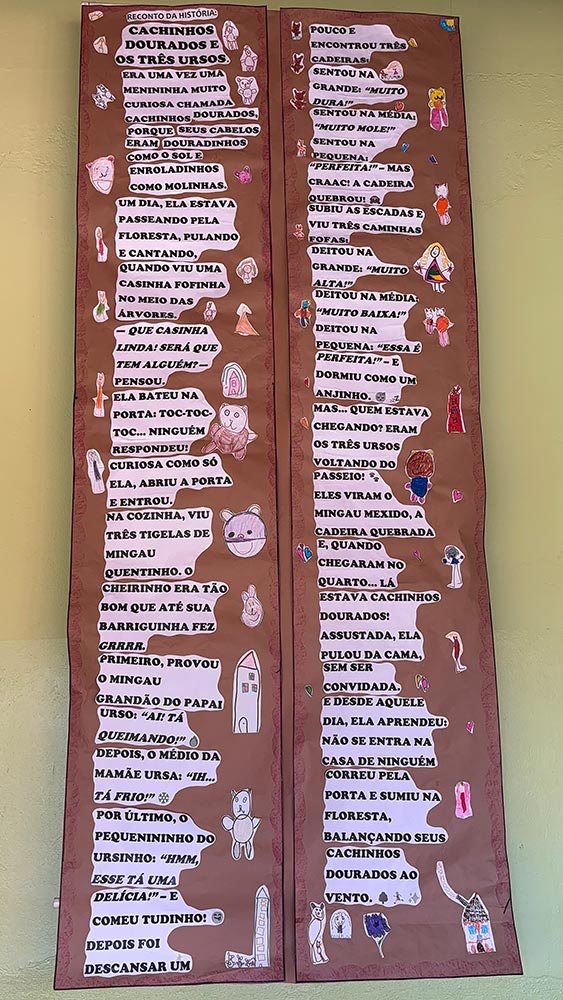 RECONTO DA HISTÓRIA:
CACHINHOS
DOURADOS E
OS TRÊS URSOS.
ERA UMA VEZ UMA
MENININHA MUITO
CURIOSA CHAMADA
CACHINHOS DOURADOS,
PORQUE SEUS CABELOS
ERAM DOURADINHOS
COMO O SOL E
ENROLADINHOS
COMO MOLINHAS.
UM DIA, ELA ESTAVA
PASSEANDO PELA
FLORESTA, PULANDO
E CANTANDO,
QUANDO VIU UMA
CASINHA FOFINHA
NO MEIO DAS
ÁRVORES.
— QUE CASINHA
LINDA! SERÁ QUE
TEM ALGUÉM? —
PENSOU.
ELA BATEU NA
PORTA: TOC-TOC-
TOC... NINGUÉM
RESPONDEU!
CURIOSA COMO SÓ
ELA, ABRIU A PORTA
E ENTROU.
NA COZINHA, VIU
TRÊS TIGELAS DE
MINGAU
QUENTINHO. O
CHEIRINHO ERA TÃO
BOM QUE ATÉ SUA
BARRIGUINHA FEZ
GRRRR.
PRIMEIRO, PROVOU
O MINGAU
GRANDÃO DO PAPAI
URSO: "AI! TÁ
QUEIMANDO!"
DEPOIS, O MÉDIO DA
MAMÃE URSA: "IH...
TÁ FRIO!" ❄
POR ÚLTIMO, O
PEQUENININHO DO
URSINHO: "HMM,
ESSE TÁ UMA
DELÍCIA!" – E
COMEU TUDINHO!
DEPOIS FOI
DESCANSAR UM
POUCO E
ENCONTROU TRÊS
CADEIRAS:
SENTOU NA
GRANDE: "MUITO
DURA!"
SENTOU NA MÉDIA:
"MUITO MOLE!"
SENTOU NA
PEQUENA:
"PERFEITA!" – MAS
CRAAC! A CADEIRA
QUEBROU!
SUBIU AS ESCADAS E
VIU TRÊS CAMINHAS
FOFAS:
DEITOU NA
GRANDE: "MUITO
ALTA!"
DEITOU NA MÉDIA:
"MUITO BAIXA!"
DEITOU NA
PEQUENA: "ESSA É
PERFEITA!" – E
DORMIU COMO UM
ANJINHO.
MAS... QUEM ESTAVA
CHEGANDO? ERAM
OS TRÊS URSOS
VOLTANDO DO
PASSEIO! 🐾
ELES VIRAM O
MINGAU MEXIDO, A
CADEIRA QUEBRADA
E, QUANDO
CHEGARAM NO
QUARTO... LÁ
ESTAVA CACHINHOS
DOURADOS!
ASSUSTADA, ELA
PULOU DA CAMA,
SEM SER
CONVIDADA.
E DESDE AQUELE
DIA, ELA APRENDEU:
NÃO SE ENTRA NA
CASA DE NINGUÉM
CORREU PELA
PORTA E SUMIU NA
FLORESTA,
BALANÇANDO SEUS
CACHINHOS
DOURADOS AO
VENTO.